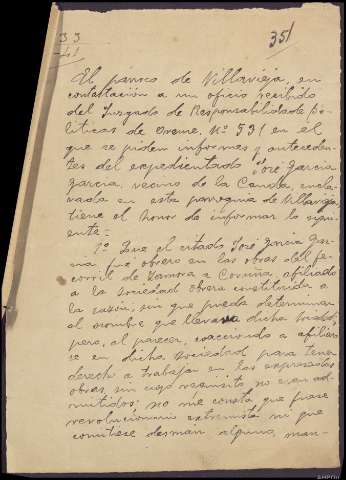 33
41
35
El párroco de Villavieja, en
contestación a un oficio recibido
del Juzgado de Responsabilidades Po-
líticas de Orense, Nº 531 en el
que se piden informes y anteceden-
tes del expedientado José García
García, vecino de la Canda, encla-
vada en esta parroquia de Villavieja,
tiene el honor de informar lo sigui-
ente:
1º Que el citado José García Gar-
cía, fué obrero en las obras del fe-
rrocarril de Zamora a Coruña, afiliado
a la sociedad obrera constituida a
la sazón, sin que pueda determinar
el nombre que llevara dicha sociedad,
pero, al parecer, coaccionado a afiliar-
se en dicha sociedad para tener
derecho a trabajar en las expresadas
obras, sin cuyo requisito no eran ad-
mitidos; no me consta que fuese
revolucionario extremista ni que
cometiese desmán alguno, man-